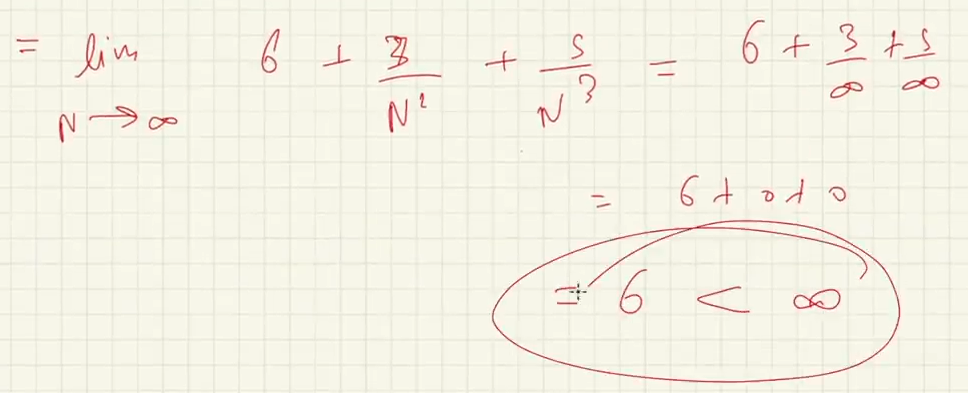 = lim 6 + 3/N² + 5/N³ = 6 + 3/∞ + 5/∞
N → ∞
= 6 + 0 + 0
= 6 < ∞